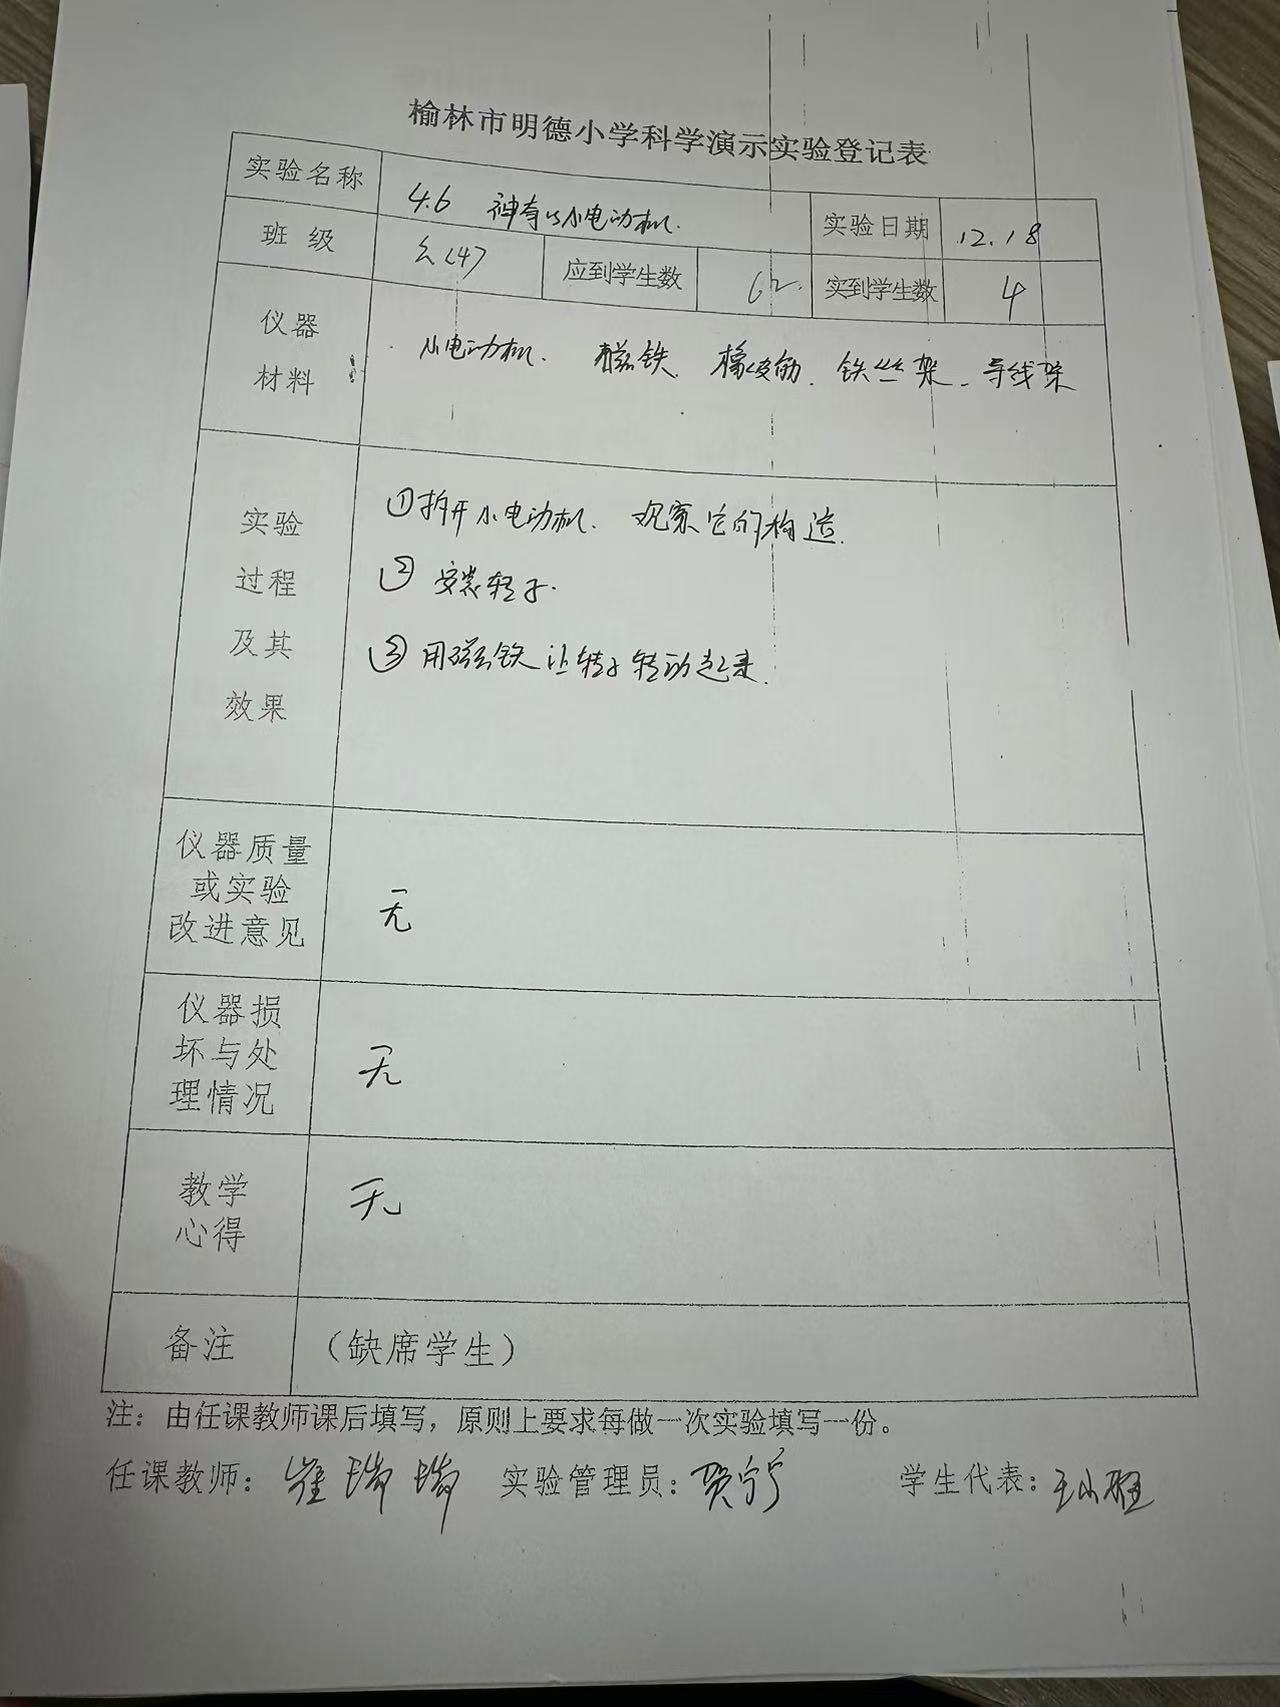 榆林市明德小学科学演示实验登记表
实验名称 4.6 神奇的小电动机. 实验日期 12.18
班 级 应到学生数 62. 实到学生数 4
仪器
材料
小电动机. 磁铁. 橡皮筋. 铁丝架. 导线架
实验
过程
及其
效果
①拆开小电动机. 观察它的构造.
② 安装转子.
③ 用磁铁让转子转动起来.
仪器质量
或实验
改进意见
无
仪器损
坏与处
理情况
无
教学
心得
无
备注 （缺席学生）
注：由任课教师课后填写，原则上要求每做一次实验填写一份。
任课教师：崔瑞瑞 实验管理员：贺宁宁 学生代表：